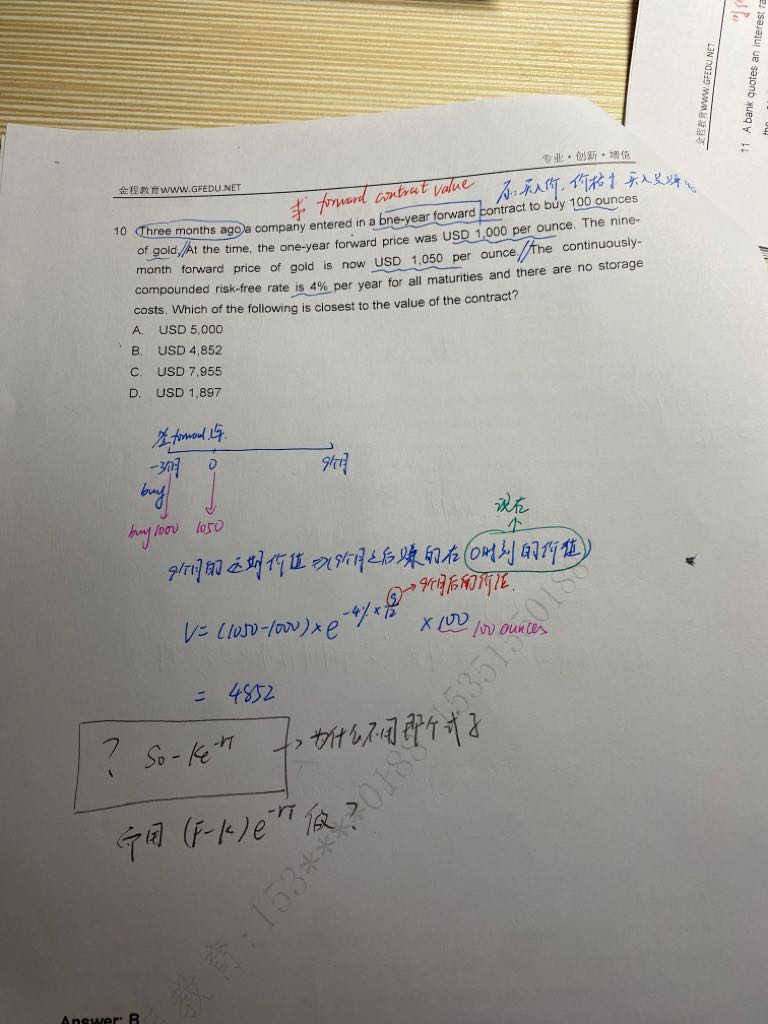 11 A bank quotes an interest ra
金程教育WWW.GFEDU.NET
专业·创新·增值
金程教育WWW.GFEDU.NET
求 forward contract value
买入价,价格
10 Three months ago a company entered in a one-year forward contract to buy 100 ounces
of gold. At the time, the one-year forward price was USD 1,000 per ounce. The nine-
month forward price of gold is now USD 1,050 per ounce. The continuously-
compounded risk-free rate is 4% per year for all maturities and there are no storage
costs. Which of the following is closest to the value of the contract?
A. USD 5,000
B. USD 4,852
C. USD 7,955
D. USD 1,897
签forward.1年.
-3个月 0 9个月
buy
buy1000 1050
现在
9个月的远期价值⇒(9个月之后赚的在0时刻的价值)
→9个月后的价值.
V=(1050-1000)×e^-4%×9/12 ×100 100 ounces
= 4852
? S0-Ke^-rT →为什么不用那个式子
用 (F-K)e^-rT 做?
教育:153****0188 15351550188
Answer: B